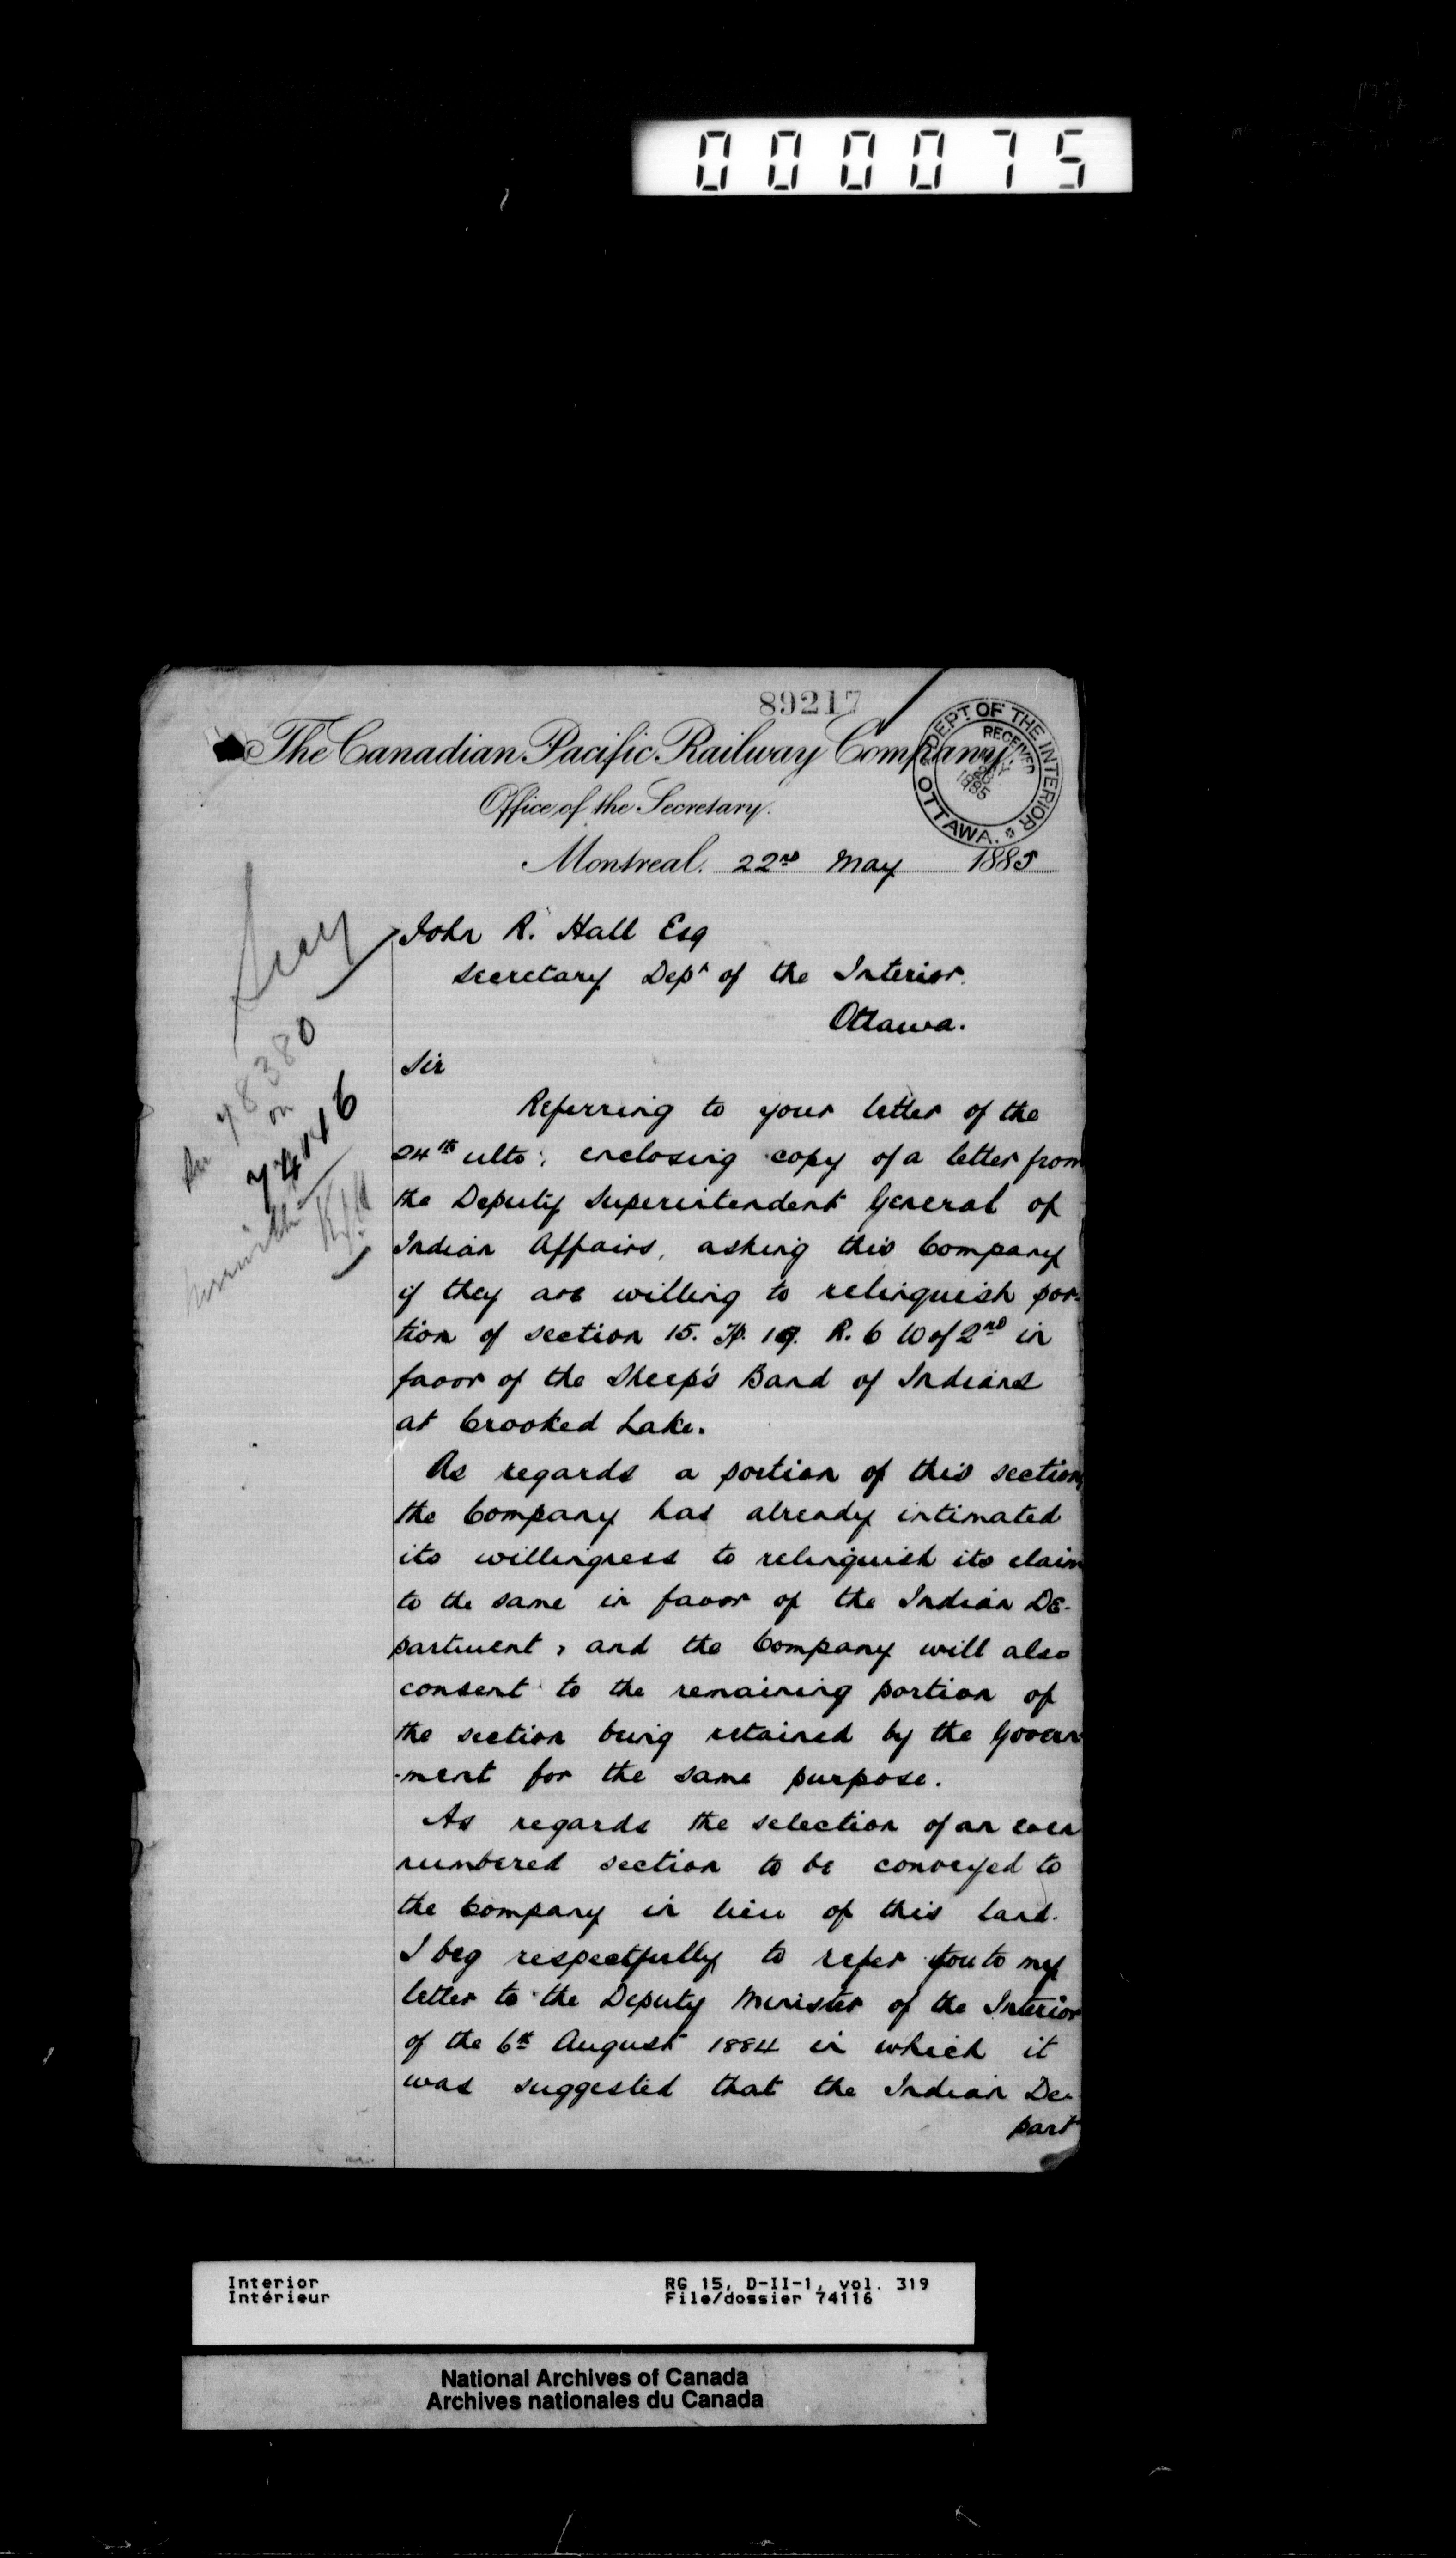 000075
89217
The Canadian Pacific Railway Company.
DEPT OF THE INTERIOR
OTTAWA.
RECEIVED
MAY
1885
Office of the Secretary.
Montreal. 22nd May 1885
John R. Hall Esq
Secretary Dept of the Interior.
Ottawa.
Sir
78380
on
74116
herewith
Referring to your letter of the
24th ulto; enclosing copy of a letter from
the Deputy Superintendent General of
Indian Affairs, asking this Company
if they are willing to relinquish por-
tion of section 15. Tp. 19. R. 6 W of 2nd in
favor of the Sheep's Band of Indians
at Crooked Lake.
As regards a portion of this section,
the Company has already intimated
its willingness to relinquish its claim
to the same in favor of the Indian De-
partment, and the Company will also
consent to the remaining portion of
the section being retained by the Govern
-ment for the same purpose.
As regards the selection of an even
numbered section to be conveyed to
the Company in lieu of this land.
I beg respectfully to refer you to my
letter to the Deputy Minister of the Interior
of the 6th August 1884 in which it
was suggested that the Indian De-
part
Interior
Intérieur
RG 15, D-II-1, vol. 319
File/dossier 74116
National Archives of Canada
Archives nationales du Canada